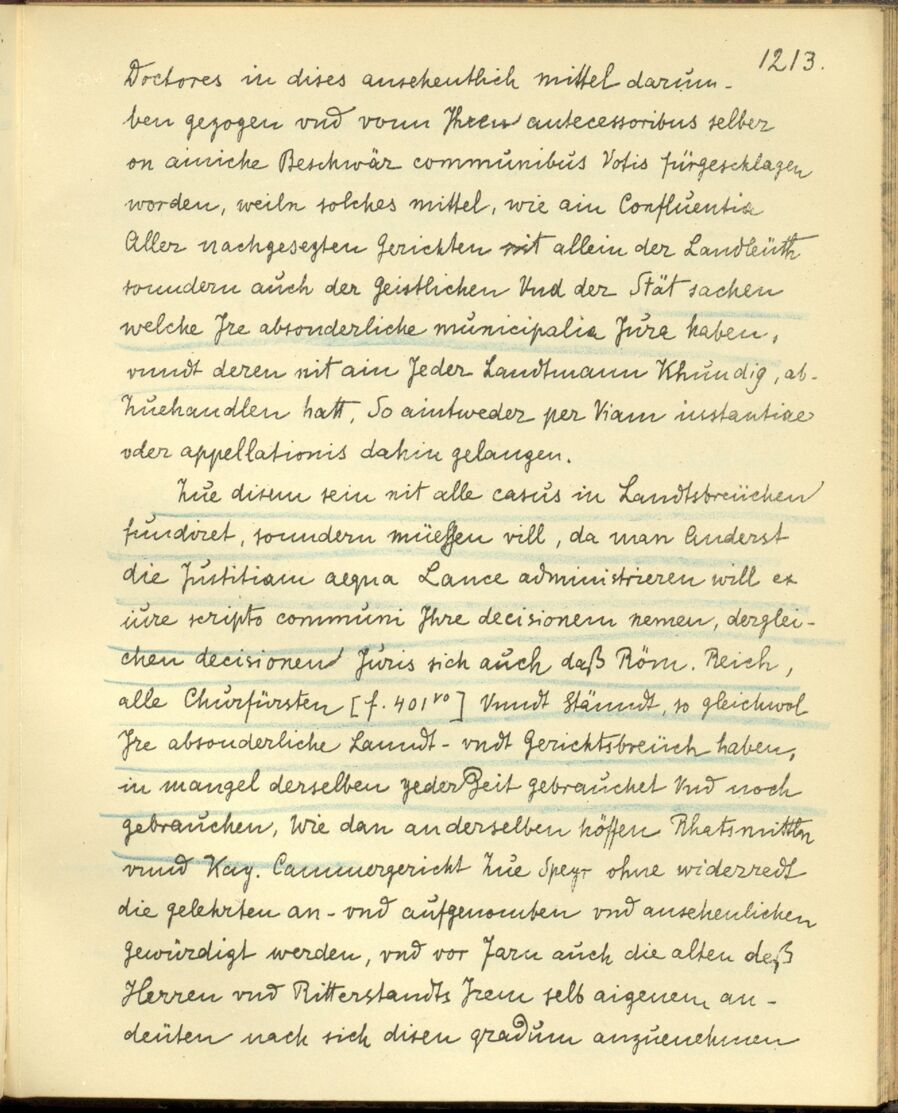 1213.
Doctores in dises ansehentlich mittel darum-
ben gezogen vnd vonn Ihren antecessoribus selber
on ainiche Beschwär communibus Votis fürgeschlagen
worden, weiln solches mittel, wie ain Confluentia
Aller nachgesezten Gerichten nit allein der Landleüth
sonndern auch der Geistlichen Vnd der Stät sachen
welche Ire absonderliche municipalia Jura haben,
vnndt deren nit ain Jeder Landtmann Khundig, ab-
Zuehandlen hatt, So aintweder per Viam instantiae
oder appellationis dahin gelangen.
Zue disem sein nit alle casus in Landtsbreüchen
fundiret, sonndern müessen vill, da man Anderst
die Justitiam aequa Lance administrieren will ex
iure scripto communi Ihre decisionem nemen, derglei-
chen decisionem Juris sich auch daß Röm. Reich,
alle Churfürsten [f. 401vo] Vnndt Stänndt, so gleichwol
Ire absonderliche Lanndt- vndt Gerichtsbreüch haben,
in mangel derselben yeder Zeit gebrauchet Vnd noch
gebrauchen, Wie dan an derselben höffen Rhatsmittln
vnnd Kay. Cammergericht Zue Speyr ohne widerredt
die gelehrten an- vnd aufgenomben vnd ansehenlichen
gewürdigt werden, vnd vor Jarn auch die alten deß
Herren vnd Ritterstandts Irem selb aigenem an-
deüten nach sich disen gradum anzuenehmen